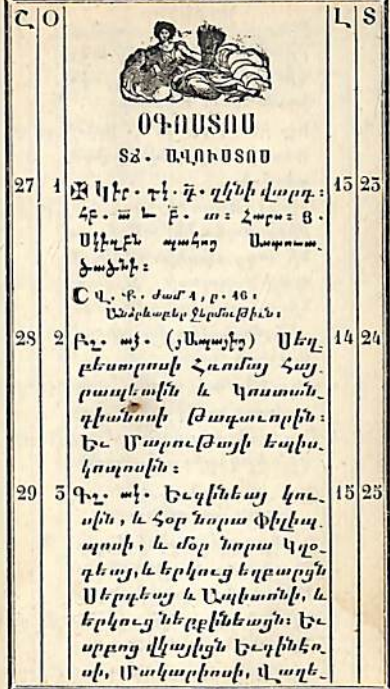 Հ Օ Լ Տ
ՕԳՈՍՏՈՍ
ՏՃ. ԱՎՈՒՍՏՈՍ
27 1 Կիր. դկ. դ. զկնի վարդ: 13 23
Հբ. Հարց: Յ.
Սկիզբն պահոց Աստուա
ծածնի:
Վ. Ք. ժամ 4, ր. 46:
Անձրևաբեր ջերմութիւն:
28 2 Բշ. ակ. (յԱպայից) Սեղ 14 24
բեստրոսի Հռոմայ Հայ
րապետին և Կոստան
դիանոսի Թագաւորին:
Եւ Մարութայի եպիս
կոպոսին:
29 3 Գշ. ակ. Եւգինեայ կու 15 25
սին, և հօր նորա Փիլիպ
պոսի, և մօր նորա Կլօ
դեայ, և երկուց եղբարցն
Սերգեայ և Ապիտոնի, և
երկուց ներքինեացն: Եւ
սրբոց վկայիցն Եւգինէո
սի, Մակարիոսի, Վաղե